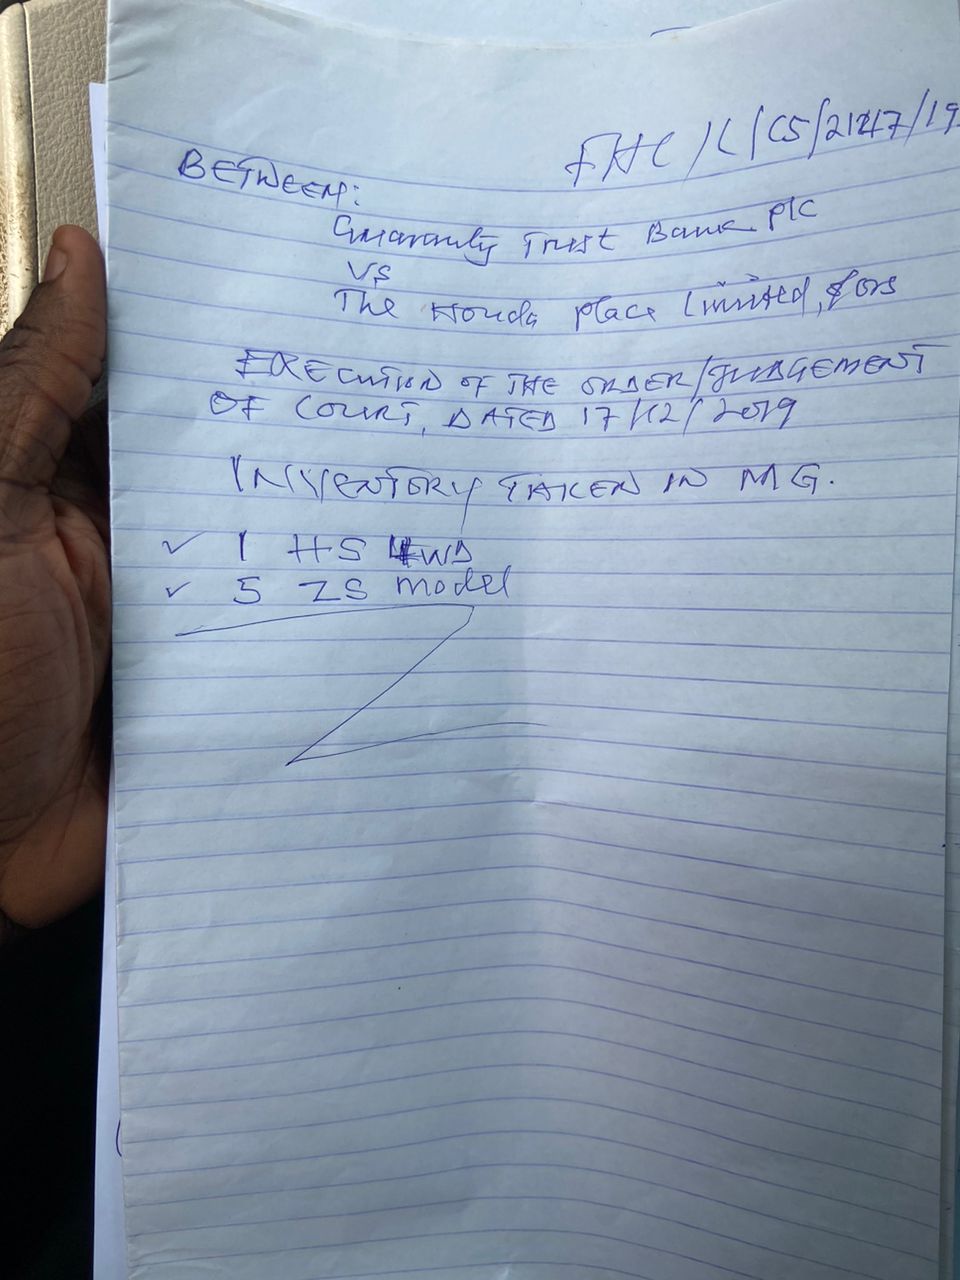 FHC/L/CS/2147/19
BETWEEN:
Guaranty Trust Bank Plc
VS
The Honda Place Limited, & ors
EXECUTION OF THE ORDER/JUDGEMENT
OF COURT, DATED 17/12/2019
INVENTORY TAKEN IN MG.
✓ 1 HS 4WD
✓ 5 ZS model